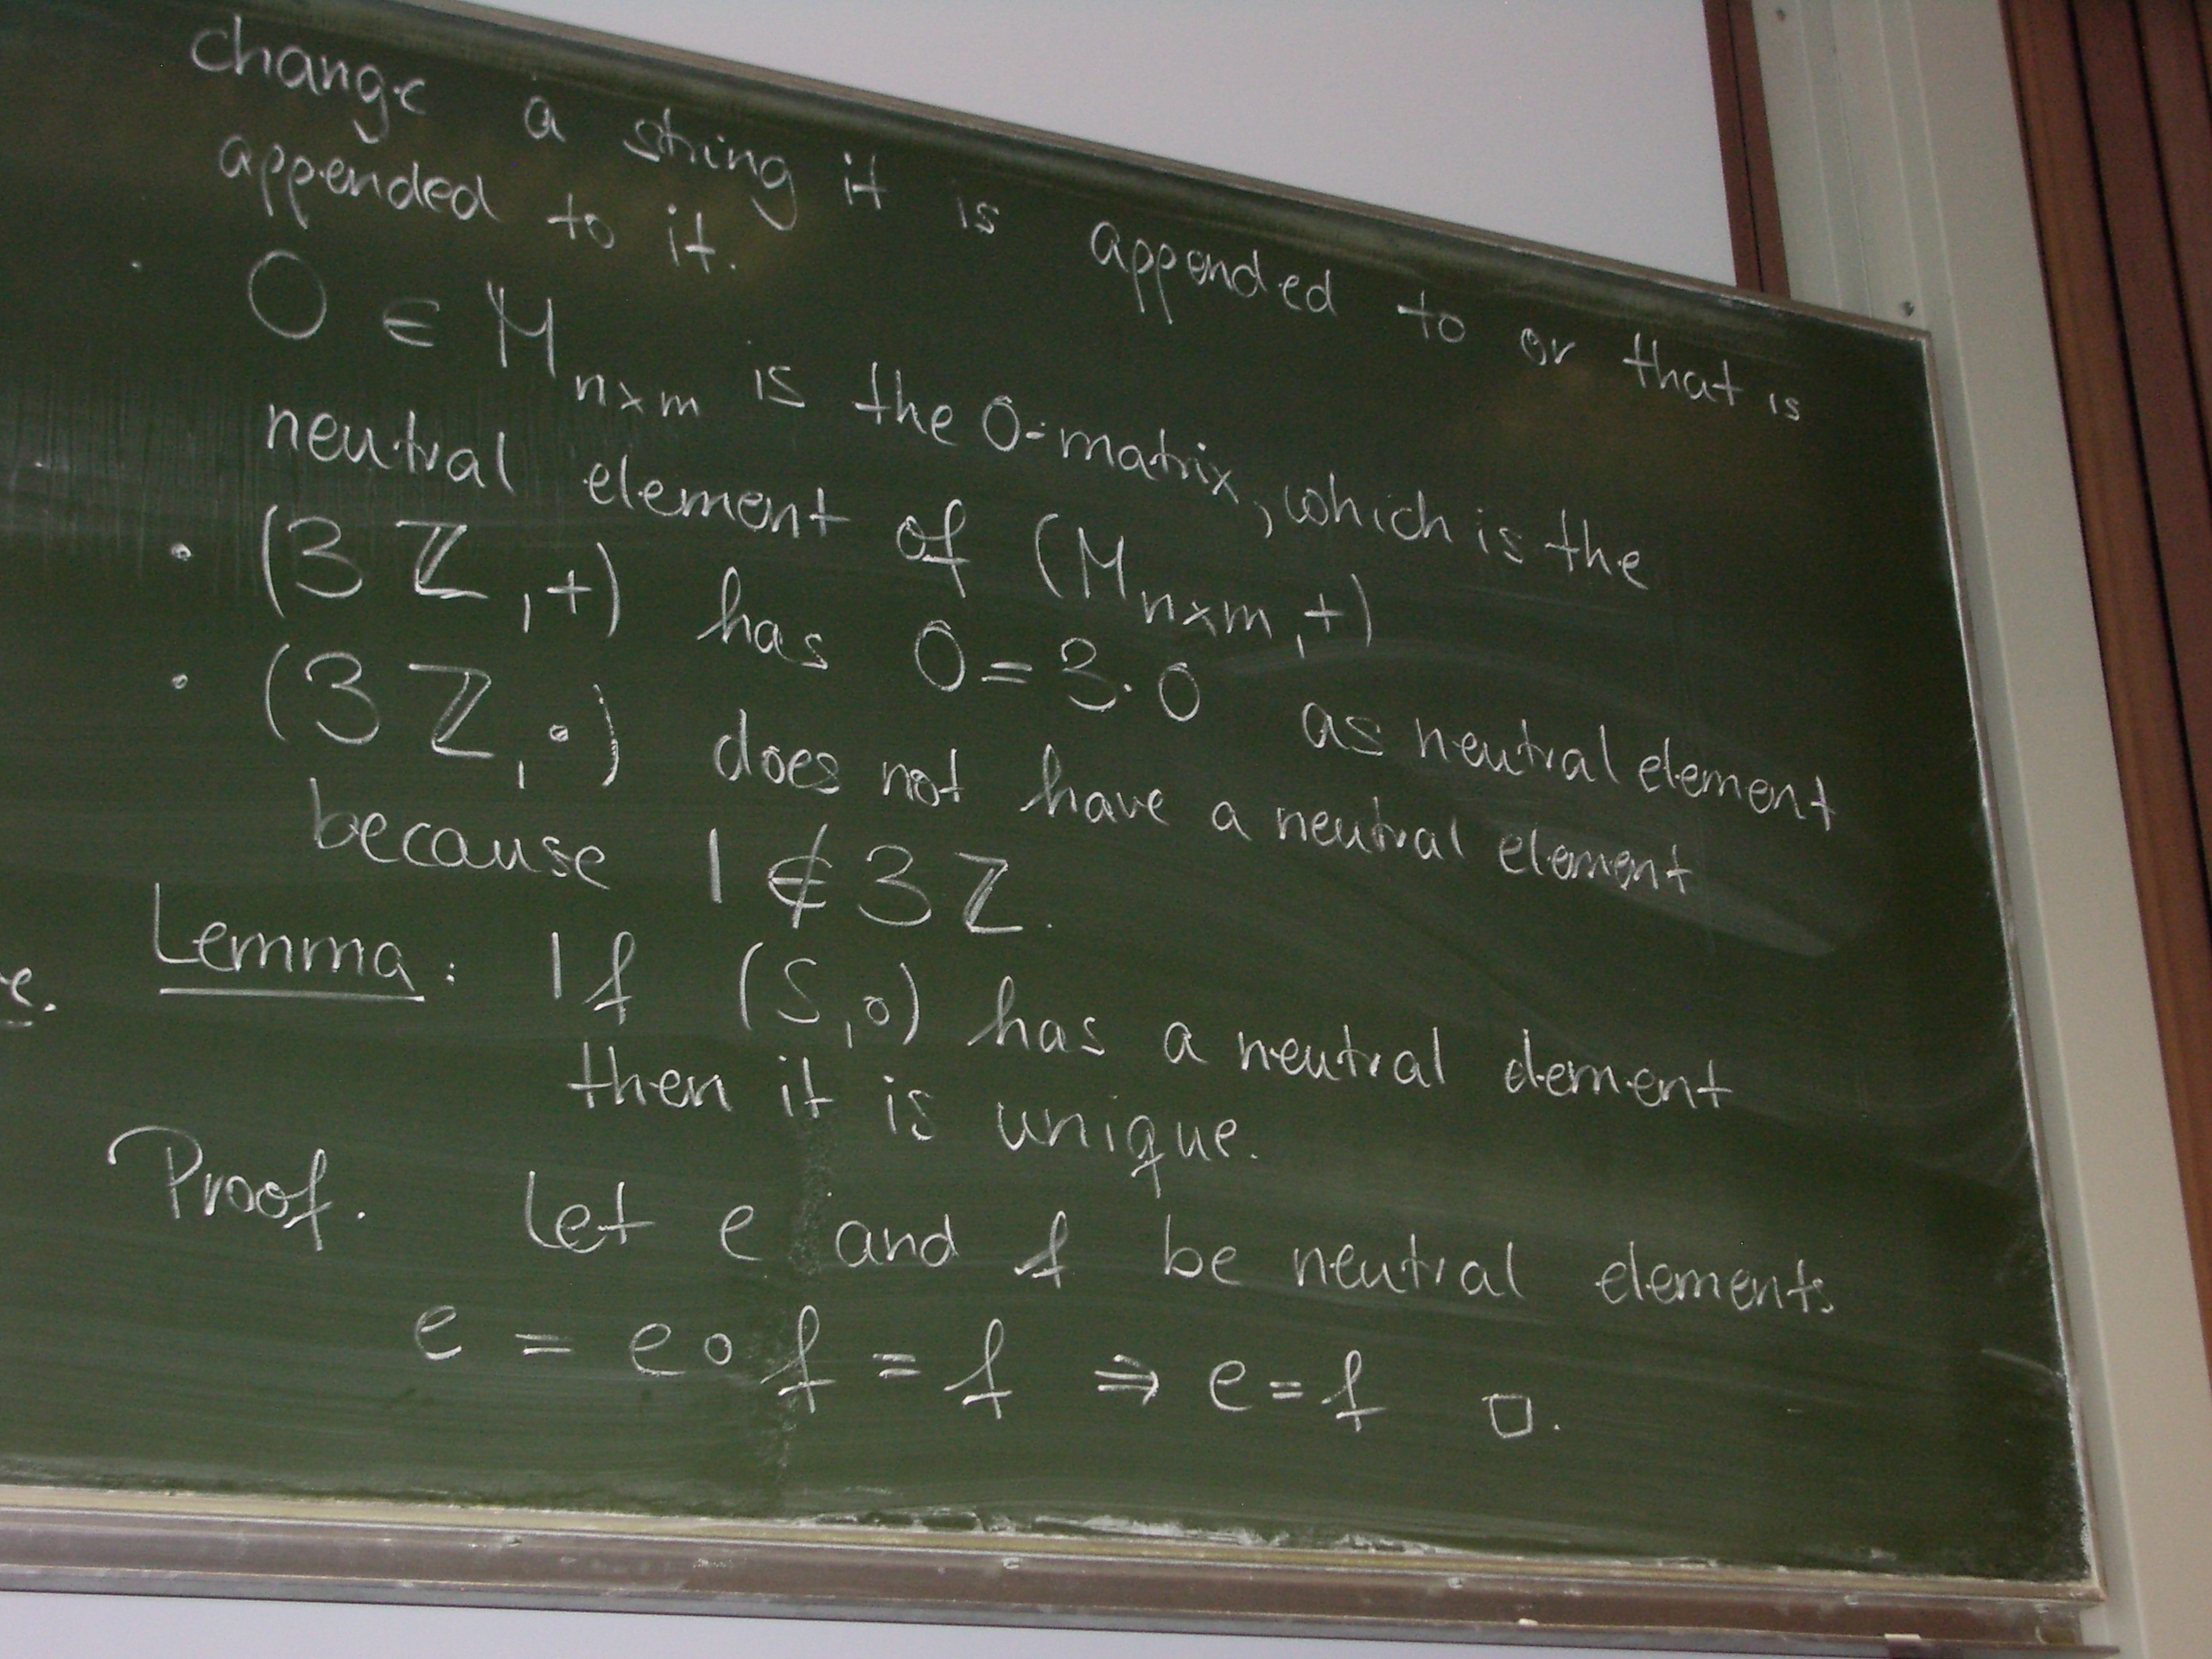 change a string it is appended to or that is
appended to it.
· 0 ∈ M_{n×m} is the 0-matrix, which is the
neutral element of (M_{n×m}, +)
· (3ℤ, +) has 0 = 3·0 as neutral element
· (3ℤ, ·) does not have a neutral element
because 1 ∉ 3ℤ.
Lemma: If (S, ∘) has a neutral element
then it is unique.
Proof. Let e and f be neutral elements
e = e ∘ f = f ⇒ e = f □.